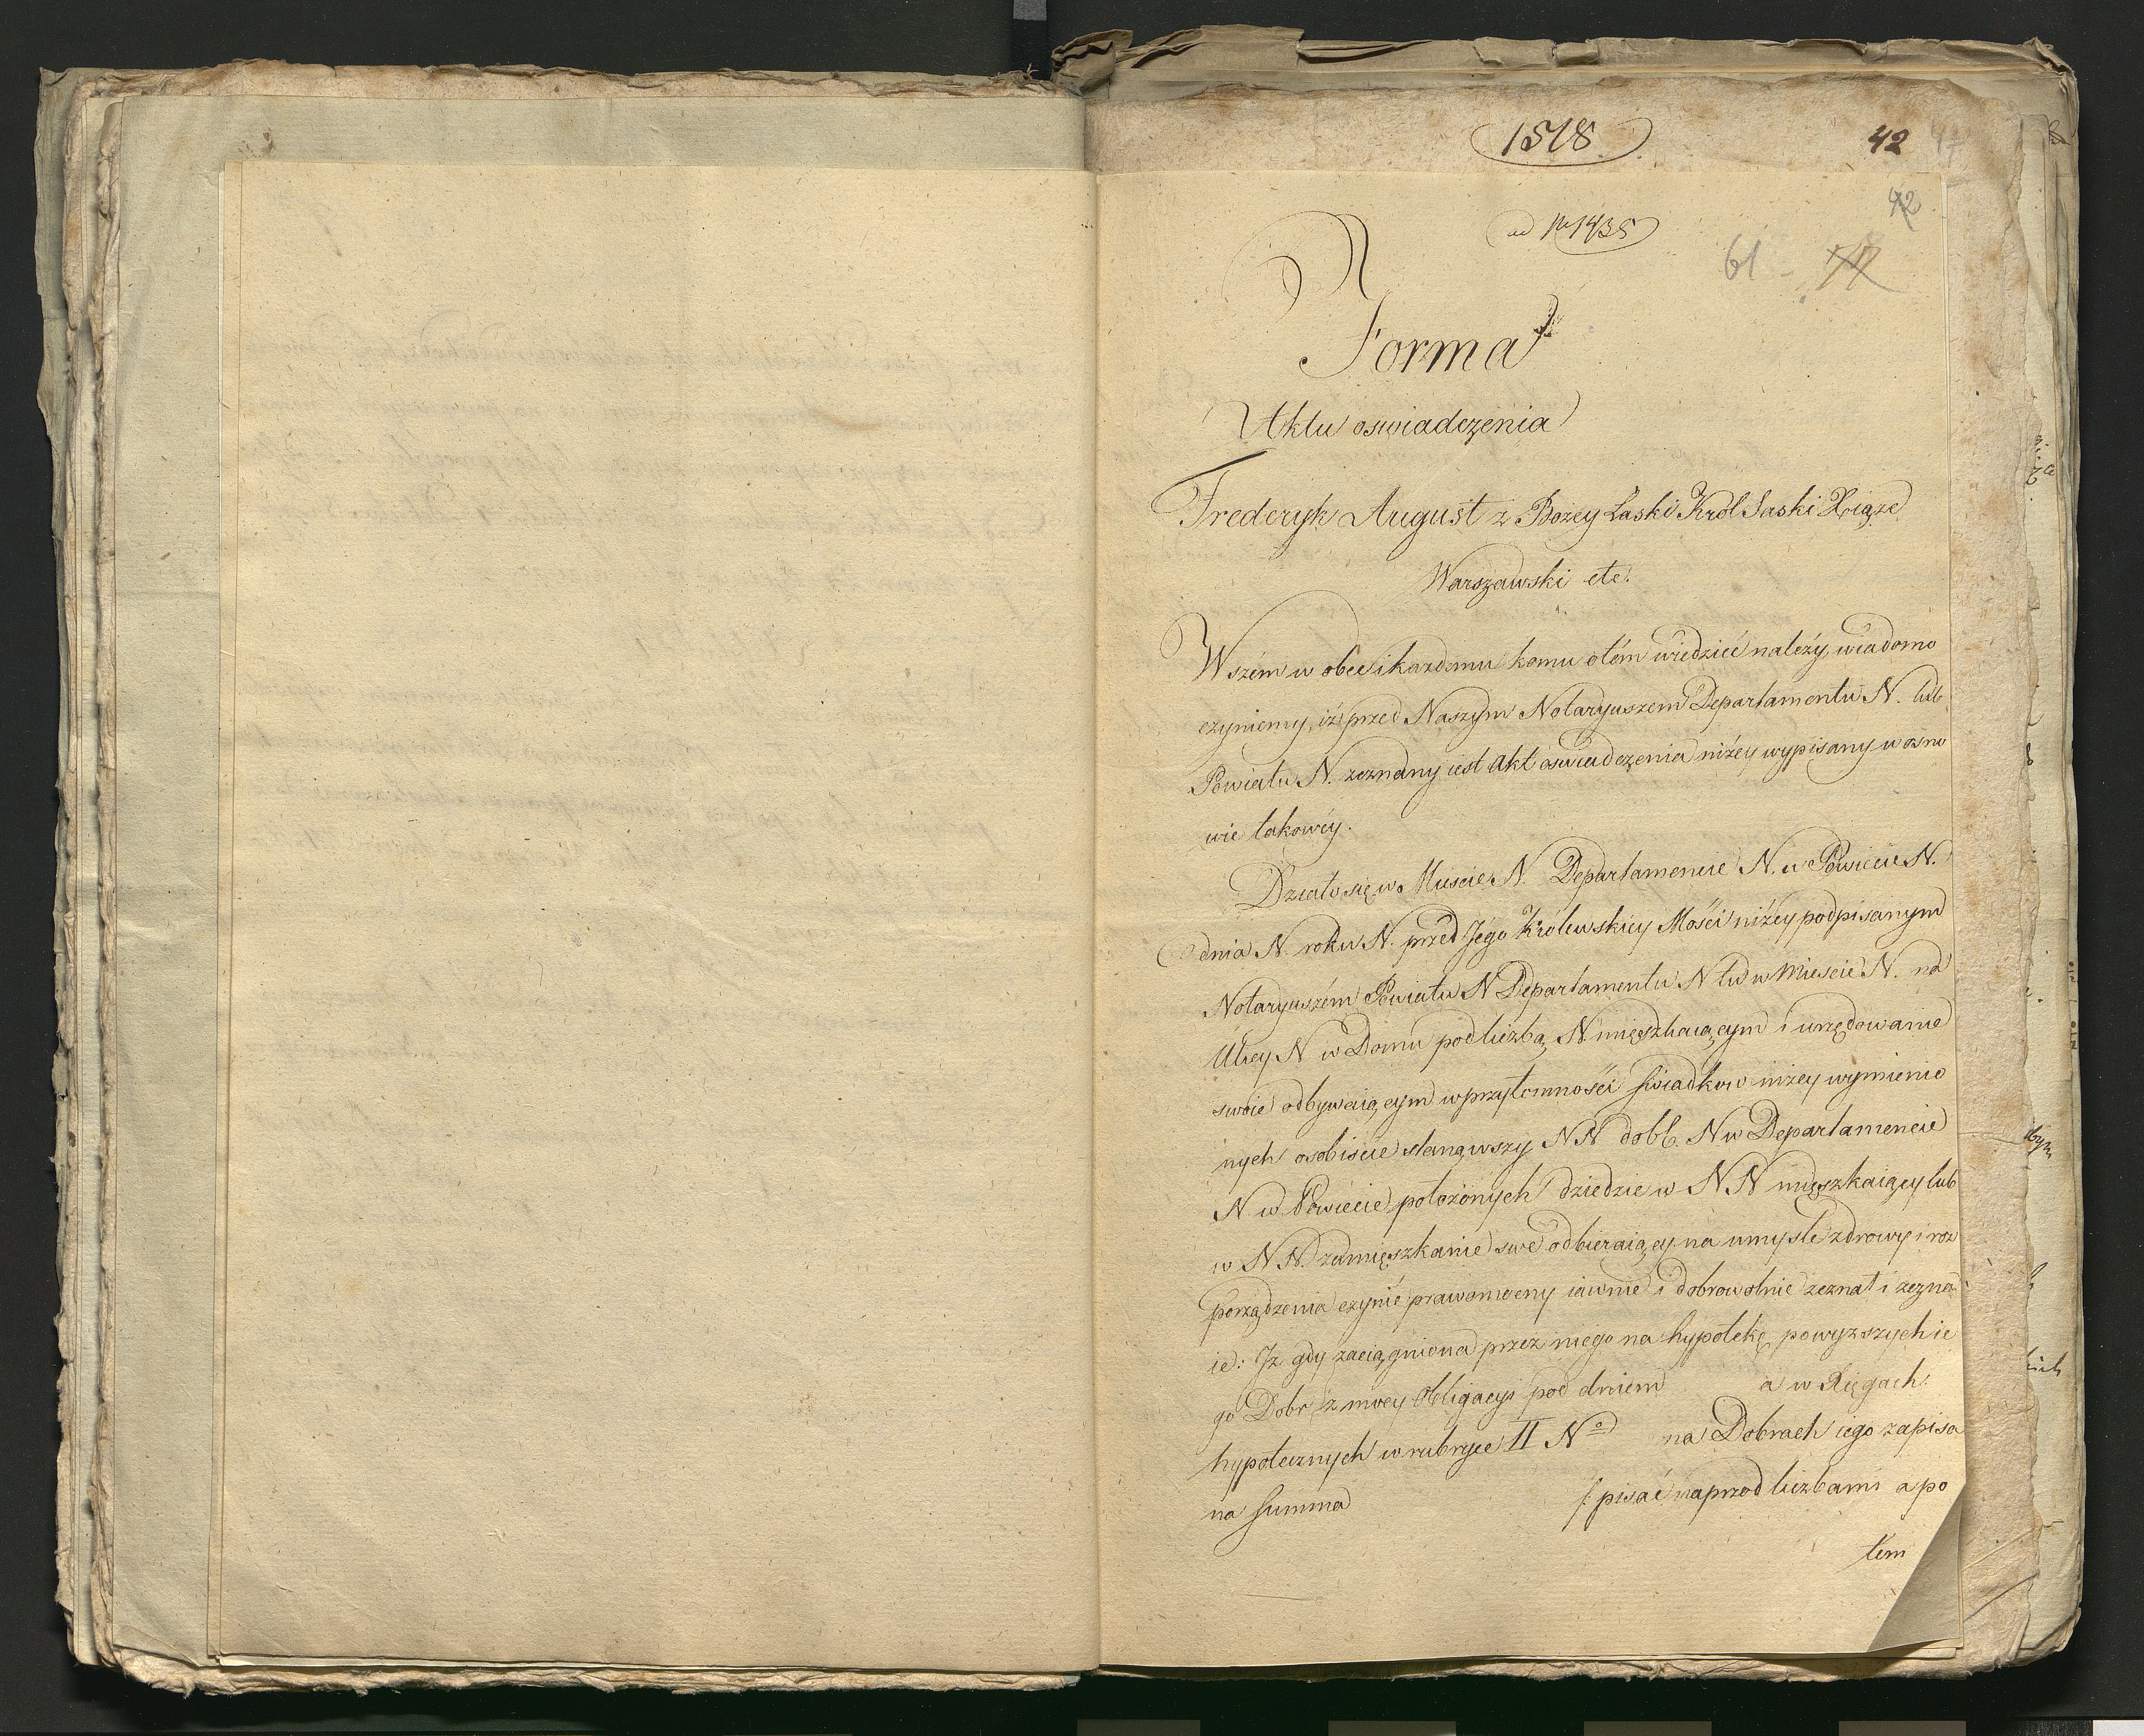 1518
42
42
ad N 1435
61
Forma
Aktu oswiadczenia
Frederyk August z Bożey Łaski Król Saski Xiąże
Warszawski etc.
Wszém w obec i każdemu komu o tém wiedzieć należy, wiadomo
czyniemy, iż przed Naszym Notaryuszem Departamentu N. lub
Powiatu N. zeznany iest Akt oswiadczenia niżey wypisany w osno
wie takowéy.
Działo się w Miescie N. Departamencie N. w Powiecie N.
dnia N. roku N. przed Jégo Królewskiey Mości niżey podpisanym
Notaryuszém Powiatu N Departamentu N tu w Miescie N. na
Ulicy N w Domu pod liczbą N mięszkaiącym i urzędowanie
swoie odbywaiącym w przytomności świadkow niżey wymienio
nych osobiscie stanąwszy NN dobr. N w Departamencie
N w Powiecie położonych dziedzic w NN mięszkaiący lub
w NN. zamięszkanie swe odbieraiący na umysle zdrowy i roz
porządzenia czynić prawomocny iawnie i dobrowolnie zeznał i zezna
ie: Jż gdy zaciągniona przez niego na hypotekę powyższych ie
go Dobr z mocy Obligacyi pod dniem a w Xięgach
hypotecznych w rubryce II No na Dobrach iego zapisa
na summa /: pisać naprzod liczbami a po
tem